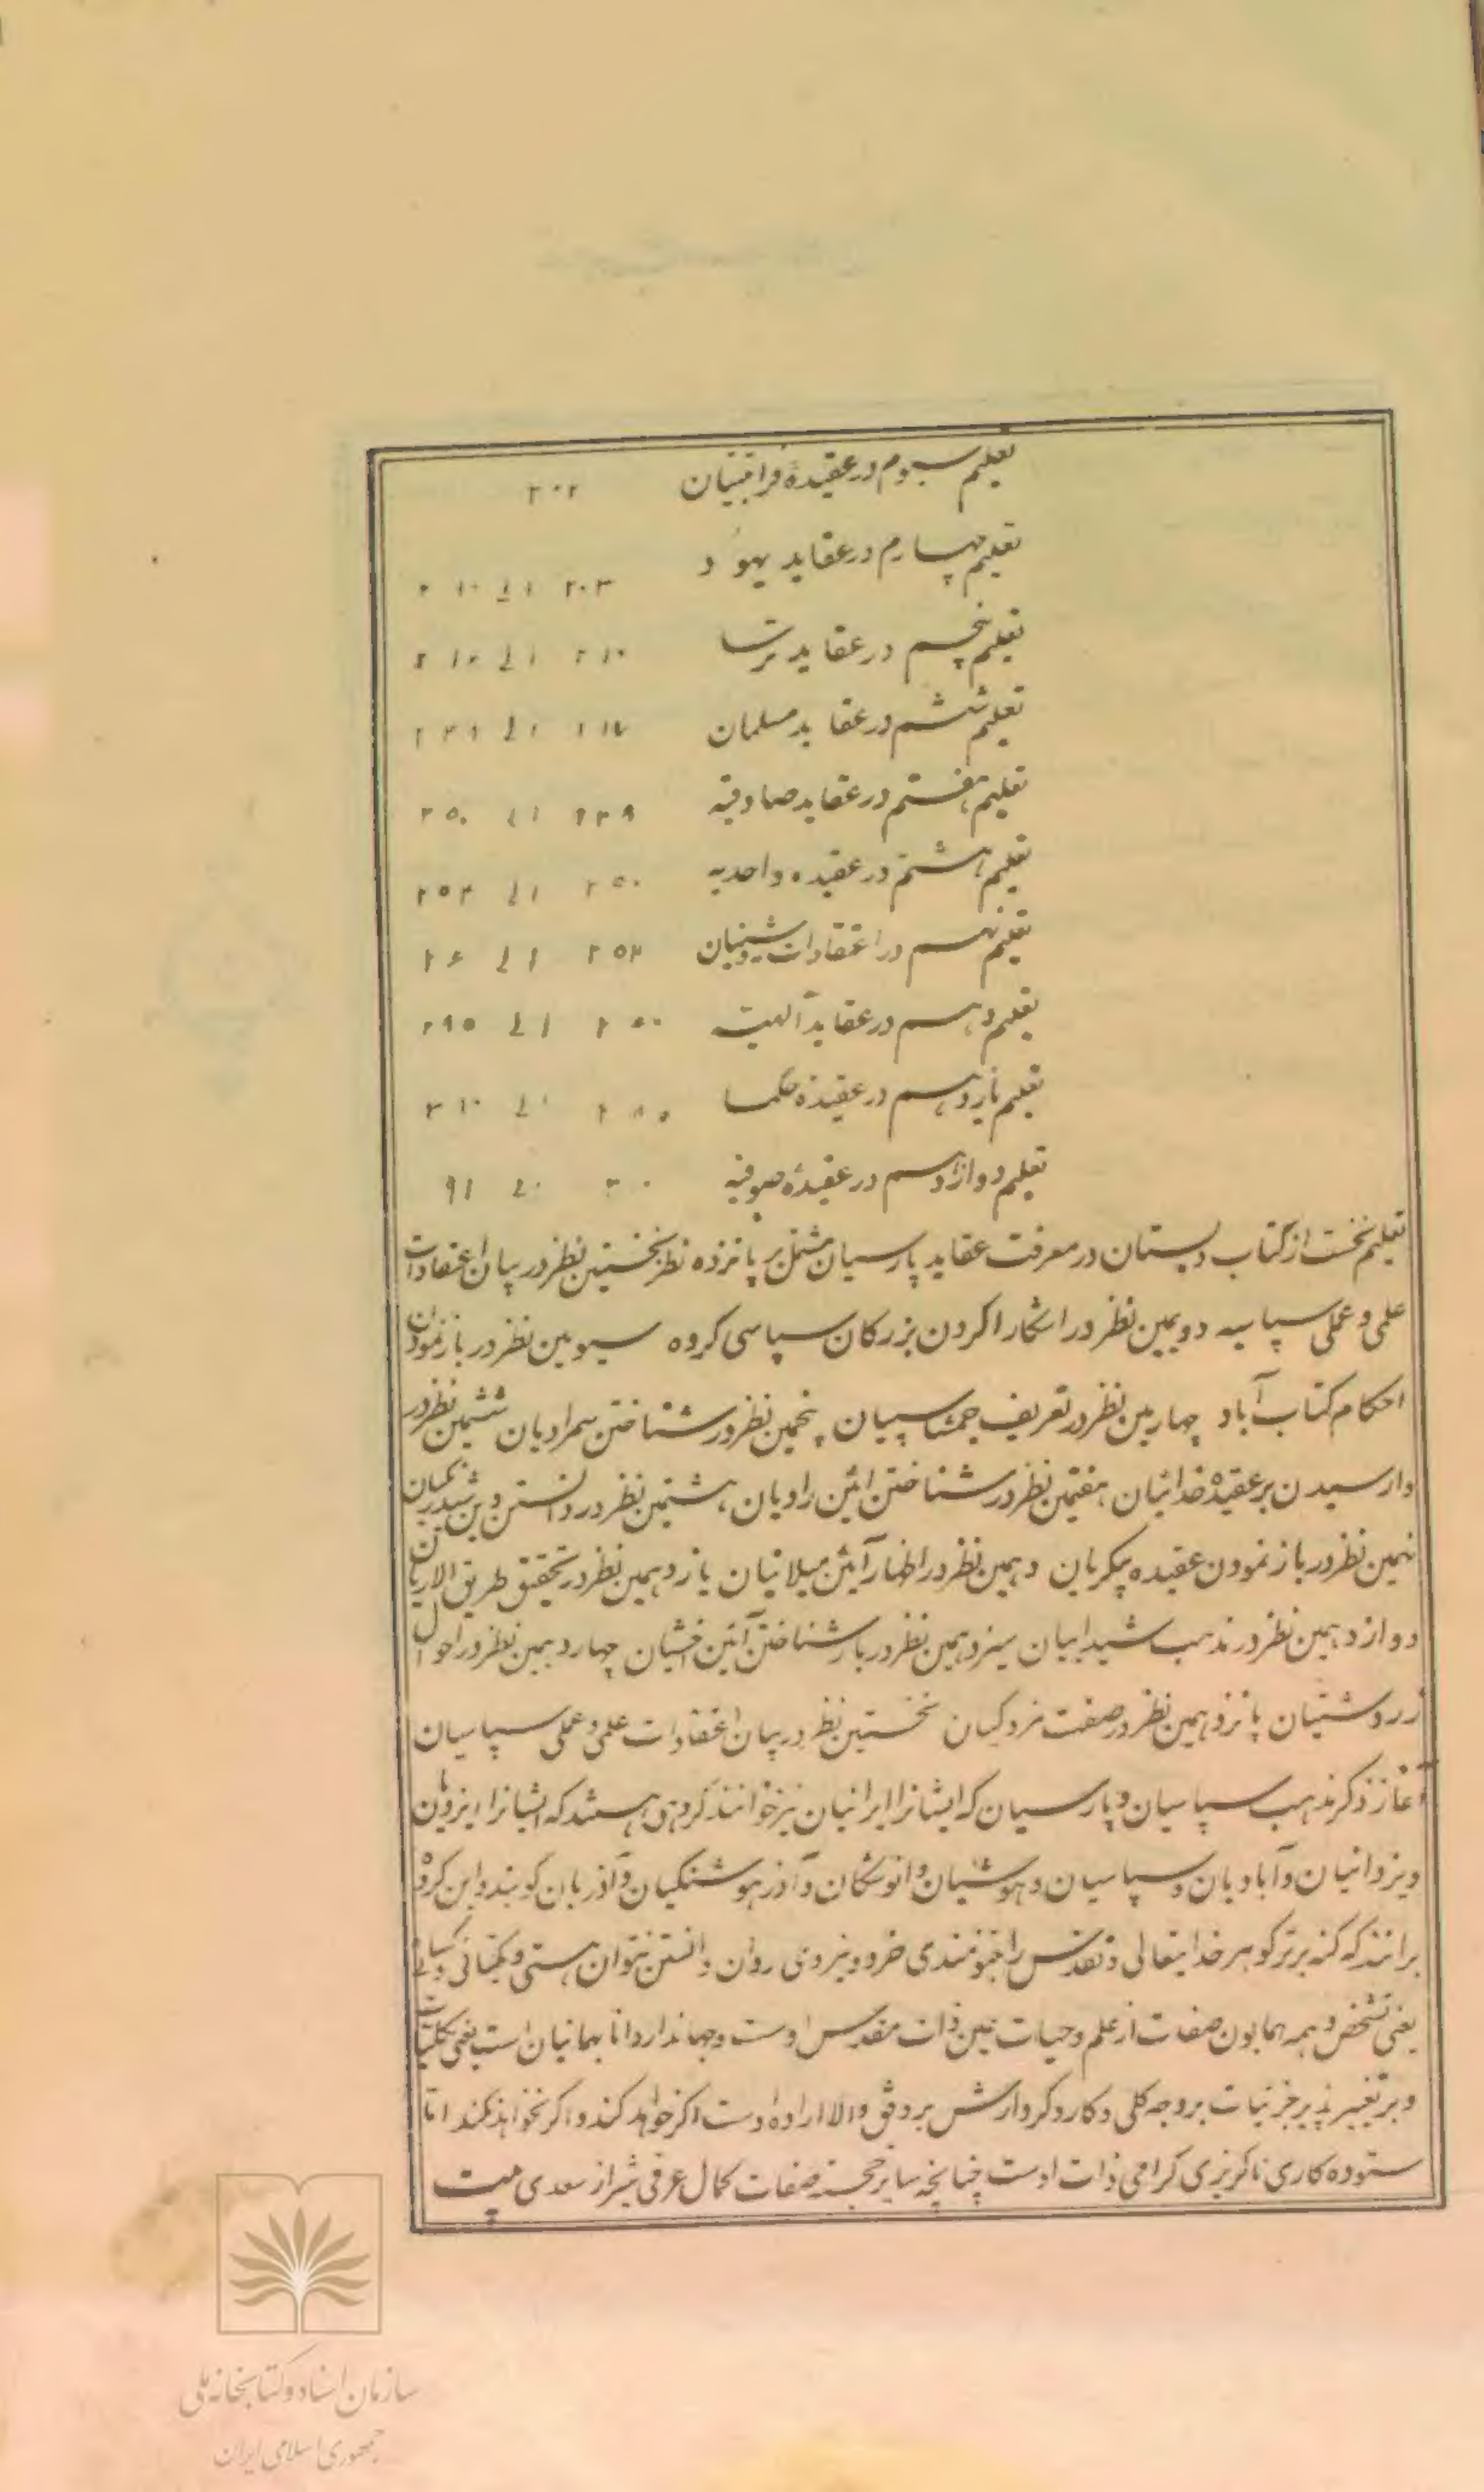 تعلیم سیوم در عقیدهٔ قرا تبتیان ۲۰۲
تعلیم چهارم در عقاید یهود ۲۰۳ الی
تعلیم پنجم در عقاید ترسا ۲۱۰ الی
تعلیم ششم در عقاید مسلمان الی
تعلیم هفتم در عقاید صادقیه ۲۳۹ الی ۲۵۰
تعلیم هشتم در عقیده واحدیه ۲۵۰ الی ۲۵۳
تعلیم نهم در اعتقادات روشنیان ۲۵۳ الی
تعلیم دهم در عقاید آلهیه الی
تعلیم یازدهم در عقیدهٔ حکما الی ۳۱۰
تعلیم دوازدهم در عقیدهٔ صوفیه
تعلیم نخست از کتاب دبستان در معرفت عقاید پارسیان مشتمل بر پانزده نظر نخستین نظر در بیان اعتقادات
علمی و عملی سپاسیه دویمین نظر در اشکارا کردن بزرکان سپاسی کروه سیومین نظر در باز نمودن
احکام کتاب آباد چهارمین نظر در تعریف جمشاسپیان پنجمین نظر در شناختن سمرادیان ششمین نظر در
وارسیدن بر عقیدهٔ خدائیان هفتمین نظر در شناختن ائین رادیان هشتمین نظر در دانستن دین شیدرنکیان
نهمین نظر در باز نمودن عقیده پیکریان دهمین نظر در اظهار آئین میلانیان یازدهمین نظر در تحقیق طریق الاریان
دوازدهمین نظر در مذهب شیدابیان سیزدهمین نظر در باز شناختن آئین اخشیان چهاردهمین نظر در احوال
زردوشتیان پانزدهمین نظر در صفت مزدکیان نخستین نظر در بیان اعتقادات علمی و عملی سپاسیان
آغاز ذکر مذهب سپاسیان و پارسیان که ایشانرا ایرانیان نیز خوانند کروهی هستند که ایشانرا ایزدیان
و یزدانیان و آبادیان و سپاسیان و هوشیان و انوشکان و آذرهوشنکیان و آذریان کویند و این کروه
برانند که کنه برتر کوهر خدایتعالی و تقدس را بتنومندی خرد و نیروی روان دانستن نتوان هستی و یکتائی و کسائی
یعنی تشخص و همه همایون صفات از علم و حیات عین ذات مقدس اوست و جهاندار دانا بهمانیان است یعنی کلیات
و بر تغییرپذیر جزئیات بر وجه کلی و کار و کردارش بر وفق والا ارادهٔ اوست اکر خواهد کند و اکر نخواهد نکند اما
ستوده کاری ناکزیری کرامی ذات اوست چنانچه سایر خجسته صفات کمال عرفی شیراز سعدی بیت
سازمان اسناد و کتابخانه ملی
جمهوری اسلامی ایران